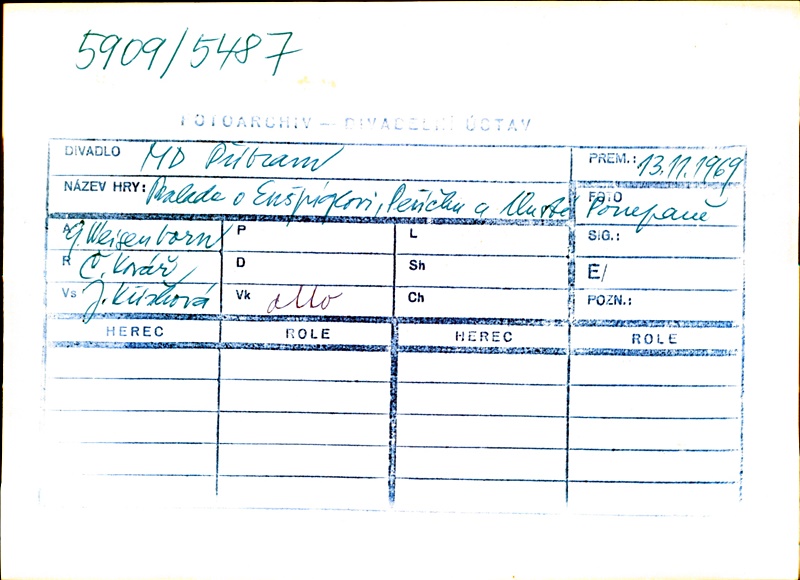 5909/5487
FOTOARCHIV – DIVADELNÍ ÚSTAV
DIVADLO MD Příbram PREM.: 13.11.1969
NÁZEV HRY: Balada o Enšpíglovi, Peříčku a tlusté Pompaně FOTO
A G. Weisenborn P L SIG.:
R Č. Kovář D Sh E/
Vs J. Křížková Vk Ch POZN.:
HEREC ROLE HEREC ROLE